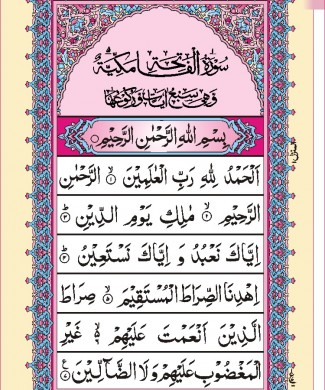 سُوْرَةُ الْفَاتِحَةِ مَكِّيَّةٌ
وَهِىَ سَبْعُ اٰيَاتٍ
بِسْمِ اللهِ الرَّحْمٰنِ الرَّحِيْمِ
اَلْحَمْدُ لِلّٰهِ رَبِّ الْعٰلَمِيْنَ ۙ﴿۱﴾ الرَّحْمٰنِ
الرَّحِيْمِ ۙ﴿۲﴾ مٰلِكِ يَوْمِ الدِّيْنِ ؕ﴿۳﴾
اِيَّاكَ نَعْبُدُ وَ اِيَّاكَ نَسْتَعِيْنُ ؕ﴿۴﴾
اِهْدِنَا الصِّرَاطَ الْمُسْتَقِيْمَ ۙ﴿۵﴾ صِرَاطَ
الَّذِيْنَ اَنْعَمْتَ عَلَيْهِمْ ۙ﴿۶﴾ غَيْرِ
الْمَغْضُوْبِ عَلَيْهِمْ وَلَا الضَّآلِّيْنَ ﴿۷﴾